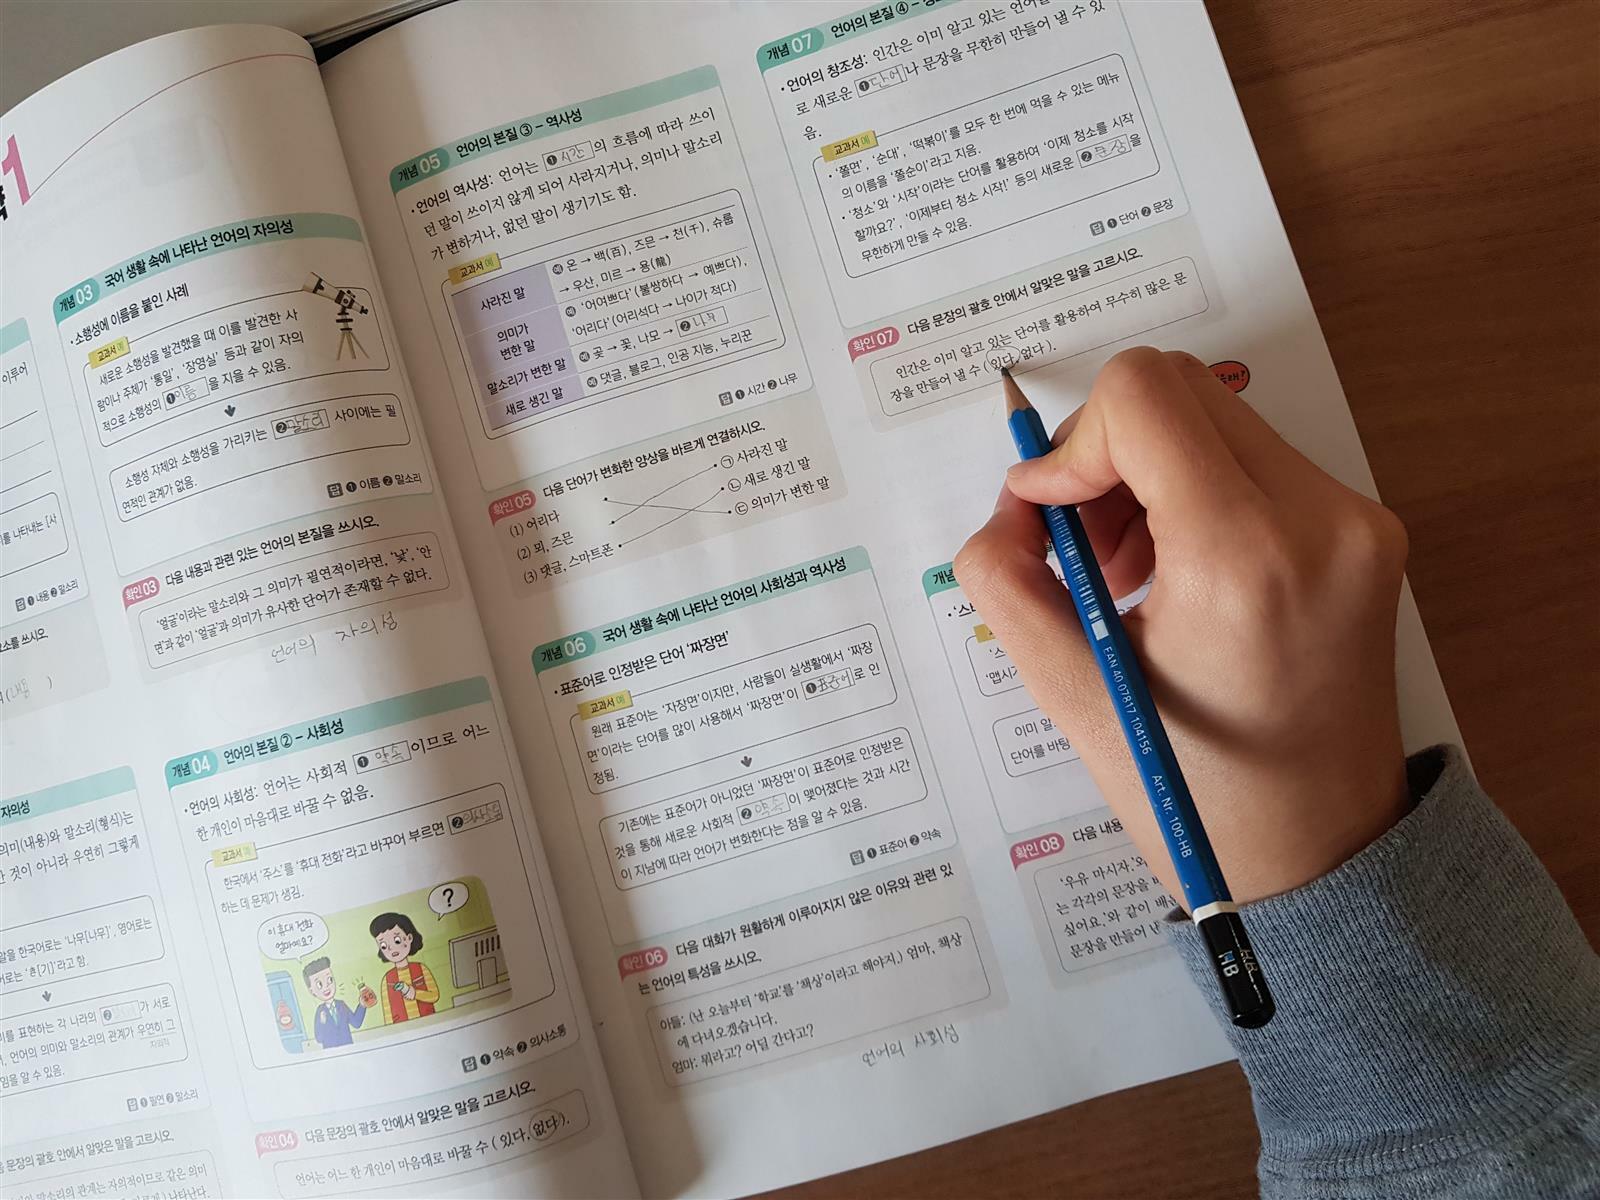 1
이루어
를 나타내는 [사
답 ❶ 내용 ❷ 말소리
요소를 쓰시오.
(내용)
자의성
의미(내용)와 말소리(형식)는
한 것이 아니라 우연히 그렇게
말을 한국어로는 '나무[나무]', 영어로는
어로는 '츄[기]'라고 함.
미를 표현하는 각 나라의 ❷ 가 서로
, 언어의 의미와 말소리의 관계가 우연히 그
자의적
임을 알 수 있음.
답 ❶ 필연 ❷ 말소리
문장의 괄호 안에서 알맞은 말을 고르시오.
말소리의 관계는 자의적이므로 같은 의미
) 나타난다.
개념 03 국어 생활 속에 나타난 언어의 자의성
• 소행성에 이름을 붙인 사례
교과서 예
새로운 소행성을 발견했을 때 이를 발견한 사
람이나 주체가 '통일', '장영실' 등과 같이 자의
적으로 소행성의 ❶이름 을 지을 수 있음.
소행성 자체와 소행성을 가리키는 ❷말소리 사이에는 필
연적인 관계가 없음.
답 ❶ 이름 ❷ 말소리
확인 03 다음 내용과 관련 있는 언어의 본질을 쓰시오.
'얼굴'이라는 말소리와 그 의미가 필연적이라면, '낯', '안
면'과 같이 '얼굴'과 의미가 유사한 단어가 존재할 수 없다.
언어의 자의성
개념 04 언어의 본질 ② – 사회성
• 언어의 사회성: 언어는 사회적 ❶ 약속 이므로 어느
한 개인이 마음대로 바꿀 수 없음.
교과서 예
한국에서 '주스'를 '휴대 전화'라고 바꾸어 부르면 ❷의사소통
하는 데 문제가 생김.
이 휴대 전화
얼마예요?
?
답 ❶ 약속 ❷ 의사소통
확인 04 다음 문장의 괄호 안에서 알맞은 말을 고르시오.
언어는 어느 한 개인이 마음대로 바꿀 수 ( 있다, 없다 ).
개념 05 언어의 본질 ③ – 역사성
• 언어의 역사성: 언어는 ❶ 시간 의 흐름에 따라 쓰이
던 말이 쓰이지 않게 되어 사라지거나, 의미나 말소리
가 변하거나, 없던 말이 생기기도 함.
교과서 예
사라진 말 예 온 → 백(百), 즈믄 → 천(千), 슈룹
→ 우산, 미르 → 용(龍)
의미가
변한 말 예 '어여쁘다' (불쌍하다 → 예쁘다),
'어리다' (어리석다 → 나이가 적다)
말소리가 변한 말 예 곶 → 꽃, 나모 → ❷ 나무
새로 생긴 말 예 댓글, 블로그, 인공 지능, 누리꾼
답 ❶ 시간 ❷ 나무
확인 05 다음 단어가 변화한 양상을 바르게 연결하시오.
(1) 어리다 ㉠ 사라진 말
(2) 뫼, 즈믄 ㉡ 새로 생긴 말
(3) 댓글, 스마트폰 ㉢ 의미가 변한 말
개념 06 국어 생활 속에 나타난 언어의 사회성과 역사성
• 표준어로 인정받은 단어 '짜장면'
교과서 예
원래 표준어는 '자장면'이지만, 사람들이 실생활에서 '짜장
면'이라는 단어를 많이 사용해서 '짜장면'이 ❶표준어 로 인
정됨.
기존에는 표준어가 아니었던 '짜장면'이 표준어로 인정받은
것을 통해 새로운 사회적 ❷ 약속 이 맺어졌다는 것과 시간
이 지남에 따라 언어가 변화한다는 점을 알 수 있음.
답 ❶ 표준어 ❷ 약속
확인 06 다음 대화가 원활하게 이루어지지 않은 이유와 관련 있
는 언어의 특성을 쓰시오.
아들: (난 오늘부터 '학교'를 '책상'이라고 해야지.) 엄마, 책상
에 다녀오겠습니다.
엄마: 뭐라고? 어딜 간다고?
언어의 사회성
개념 07 언어의 본질 ④ –
• 언어의 창조성: 인간은 이미 알고 있는 언어를
로 새로운 ❶단어 나 문장을 무한히 만들어 낼 수 있
음.
교과서 예
• '쫄면', '순대', '떡볶이'를 모두 한 번에 먹을 수 있는 메뉴
의 이름을 '쫄순이'라고 지음.
• '청소'와 '시작'이라는 단어를 활용하여 '이제 청소를 시작
할까요?', '이제부터 청소 시작!' 등의 새로운 ❷ 문장 을
무한하게 만들 수 있음.
답 ❶ 단어 ❷ 문장
확인 07 다음 문장의 괄호 안에서 알맞은 말을 고르시오.
인간은 이미 알고 있는 단어를 활용하여 무수히 많은 문
장을 만들어 낼 수 ( 있다, 없다 ).
개념
• '스
'스
'맵시
이미 알
단어를 바탕
확인 08 다음 내용
'우유 마시자.'
는 각각의 문장을
싶어요.'와 같이
문장을 만들어
EAN 40 07817 104156 Art. Nr. 100-HB
HB
HB